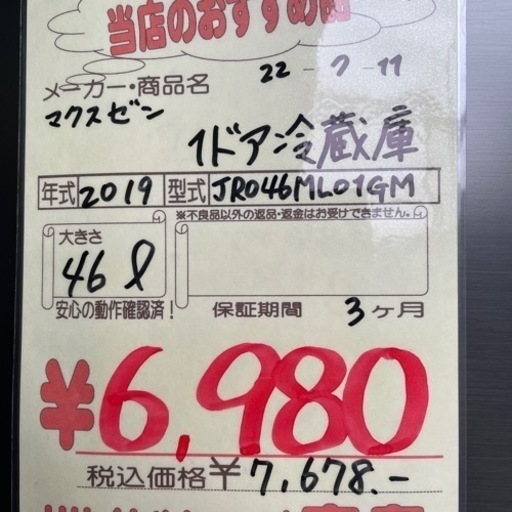 当店のおすすめ品
メーカー・商品名 22-7-11
マクスゼン
1ドア冷蔵庫
年式 2019 型式 JR046ML01GM
※不良品以外の返品・返金はお受けできません。
大きさ
46ℓ
安心の動作確認済！ 保証期間 3ヶ月
¥6,980
税込価格¥7,678.-